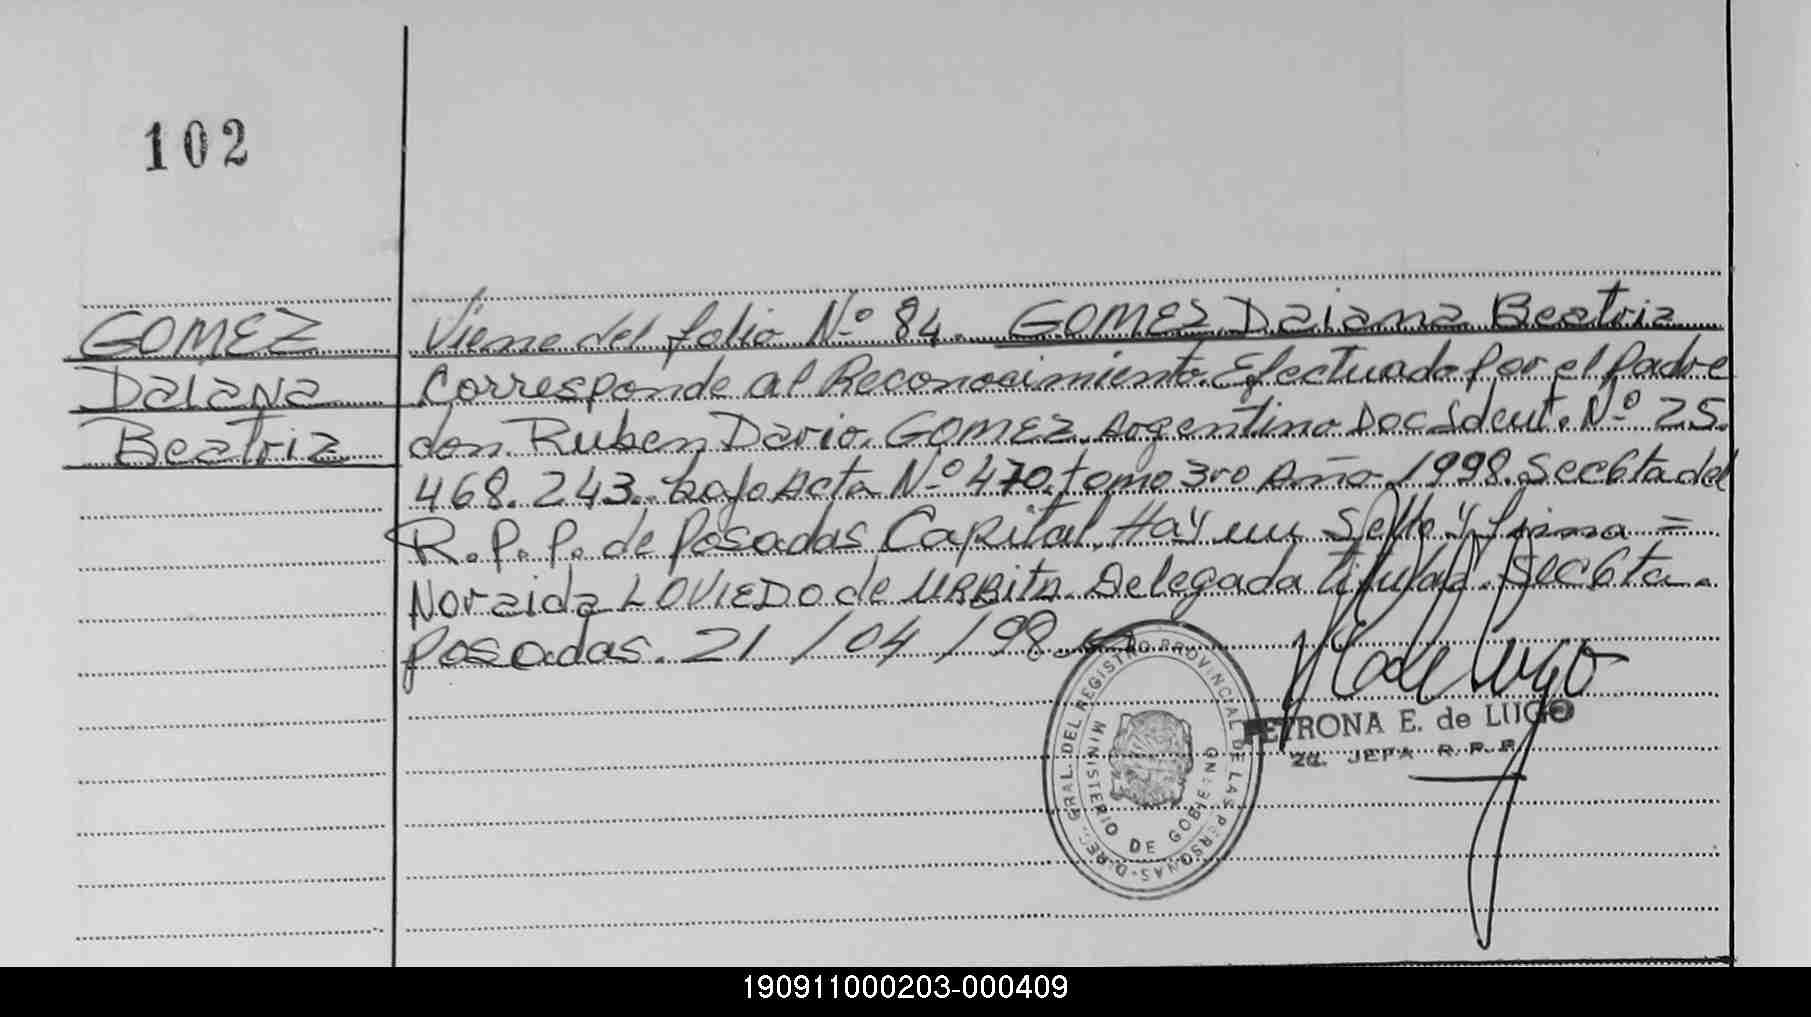 102
GOMEZ
Daiana
Beatriz
Viene del folio Nº 84. GOMES Daiana Beatriz
Corresponde al Reconocimiento Efectuado por el padre
don Ruben Dario GOMEZ Argentino Doc Ident. Nº 25.
468.243. bajo Acta Nº 470 tomo 3ro Año 1998. Secc6ta del
R.P.P. de Posadas Capital. Hay un Sello y firma =
Noraida LOVIEDO de URBITA Delegada titular Secc6ta.
Posadas. 21/04/98.
DIREC. GRAL. DEL REGISTRO PROVINCIAL DE LAS PERSONAS
MINISTERIO DE GOBIERNO
PETRONA E. de LUGO
2a. JEFA R.P.P.
190911000203-000409